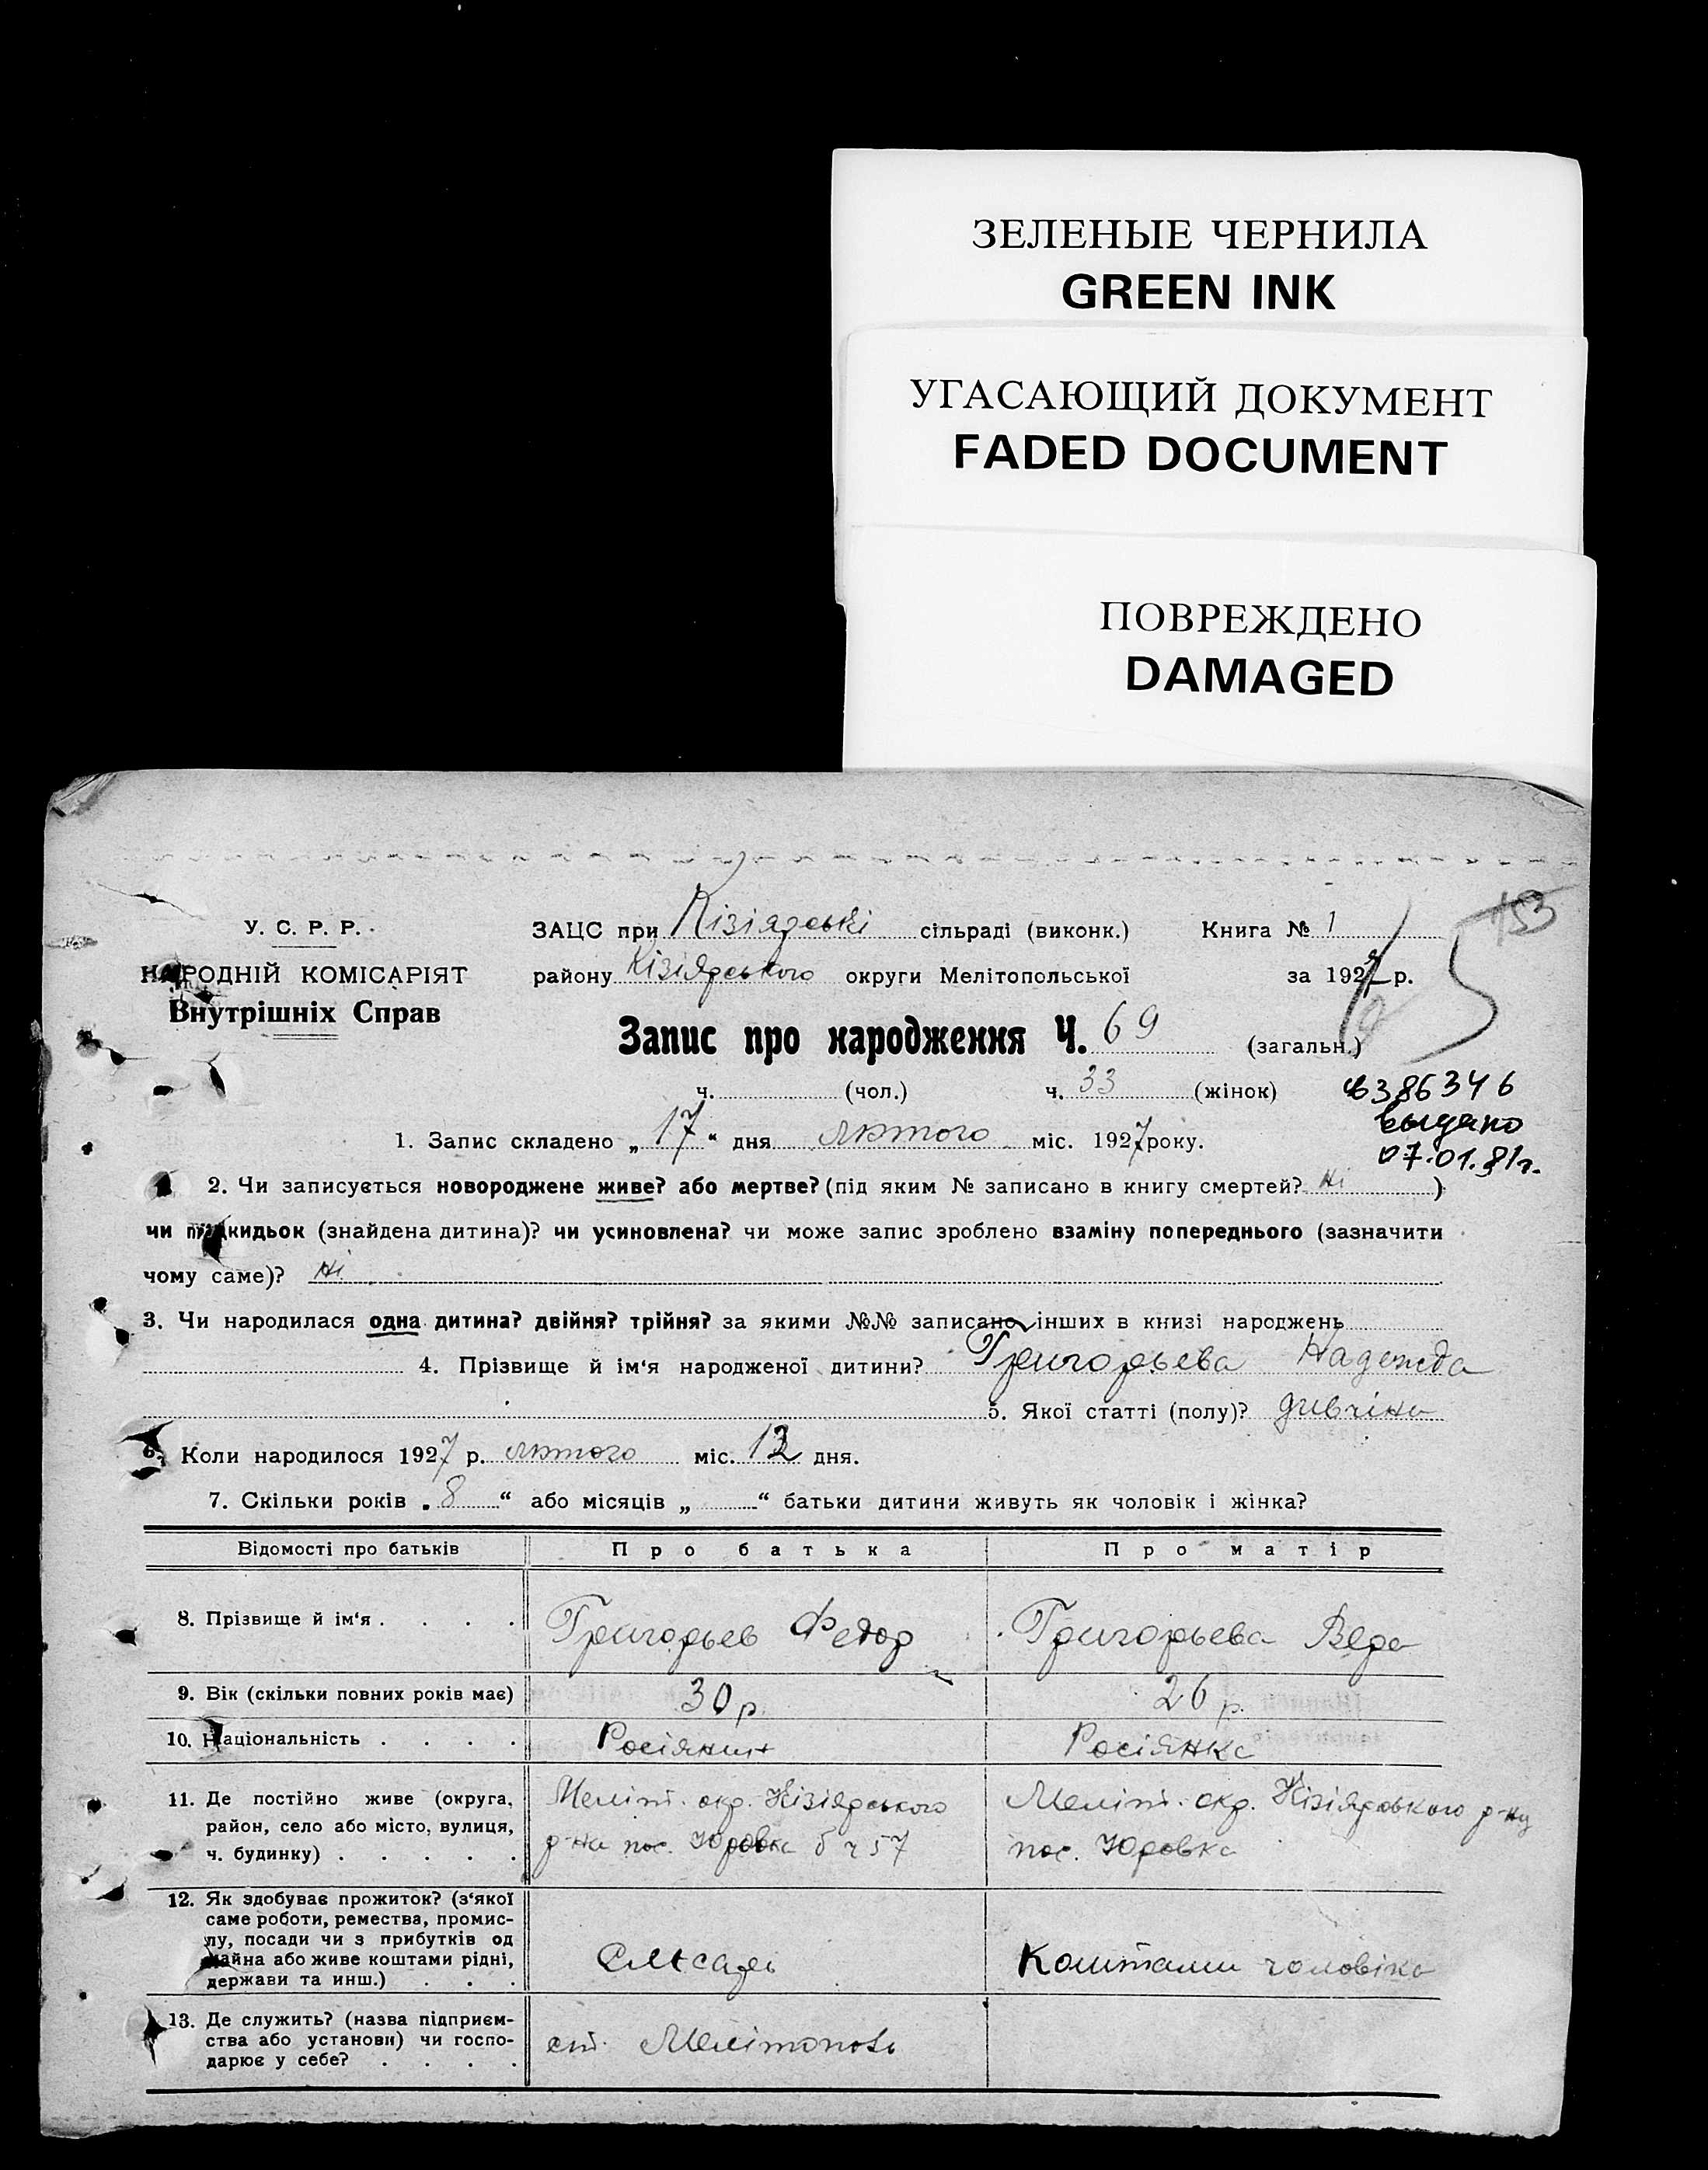 ЗЕЛЕНЫЕ ЧЕРНИЛА
GREEN INK
УГАСАЮЩИЙ ДОКУМЕНТ
FADED DOCUMENT
ПОВРЕЖДЕНО
DAMAGED
153
У. С. Р. Р.
НАРОДНІЙ КОМІСАРІЯТ
Внутрішніх Справ
ЗАЦС при Кізіярські сільраді (виконк.) Книга № 1
району Кізіярського округи Мелітопольської за 1927 р.
Запис про народження Ч. 69 (загальн.)
ч. (чол.) ч. 33 (жінок)
386346
выдано
07.01.81г.
1. Запис складено „ 17 “ дня лютого міс. 1927 року.
2. Чи записується новороджене живе? або мертве? (під яким № записано в книгу смертей? Ні )
чи підкидьок (знайдена дитина)? чи усиновлена? чи може запис зроблено взаміну попереднього (зазначити
чому саме)? Ні
3. Чи народилася одна дитина? двійня? трійня? за якими №№ записано інших в книзі народжень
4. Прізвище й ім‘я народженої дитини? Григорьева Надежда
5. Якої статті (полу)? дивчіна
6. Коли народилося 1927 р. лютого міс. 12 дня.
7. Скільки років „ 8 “ або місяців „ “ батьки дитини живуть як чоловік і жінка?
Відомості про батьків Про батька Про матір
8. Прізвище й ім‘я . . . . Григорьев Федор Григорьева Вера
9. Вік (скільки повних років має) 30 р. 26 р.
10. Національність . . . . Росіянин Росіянка
11. Де постійно живе (округа,
район, село або місто, вулиця,
ч. будинку) . . . . .
Меліт. окр. Кізіярського
р-на пос. Юровка б ч 57
Меліт. окр. Кізіярського р-ну
пос. Юровка
12. Як здобуває прожиток? (з‘якої
саме роботи, ремества, промис-
лу, посади чи з прибутків од
майна або живе коштами рідні,
держави та инш.) . . .
Слюсарь
Коштами чоловіка
13. Де служить? (назва підприєм-
ства або установи) чи госпо-
дарює у себе? . . . .
ст. Мелітополь